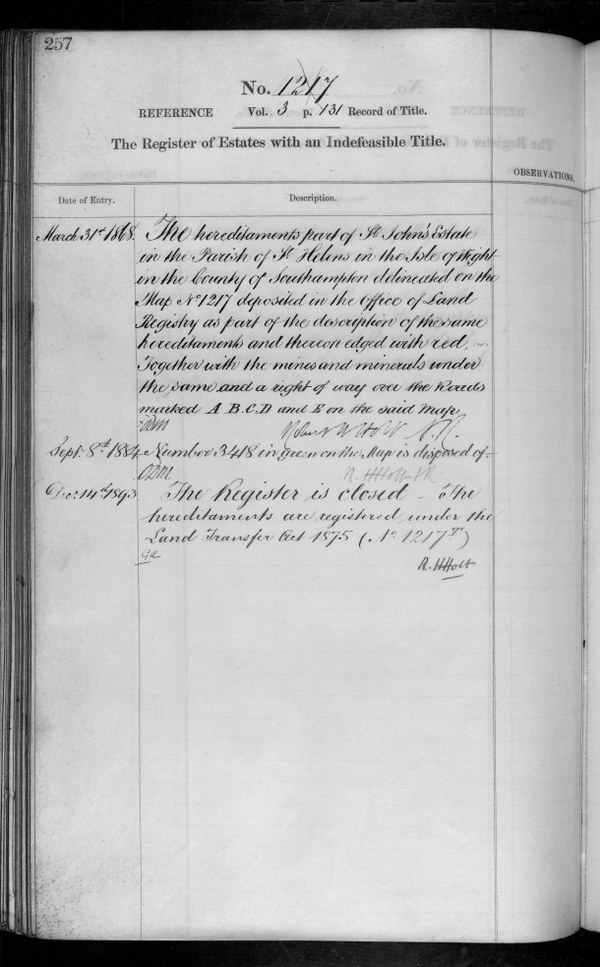 257
No. 1217
REFERENCE Vol. 3 p. 131 Record of Title.
The Register of Estates with an Indefeasible Title.
OBSERVATIONS.
Date of Entry. Description.
March 31st 1868. The hereditaments part of St. John's Estate
in the Parish of St. Helens in the Isle of Wight
in the County of Southampton delineated on the
Map No 1217 deposited in the Office of Land
Registry as part of the description of the same
hereditaments and thereon edged with red.
Together with the mines and minerals under
the same and a right of way over the Roads
marked A B. C. D and E on the said Map
Sept. 8th 1884 Number 3418 in green on the Map is disposed of
Dec: 14th 1893 The Register is closed - The
hereditaments are registered under the
Land Transfer Act 1875 (No 1217 )
R. H Holt